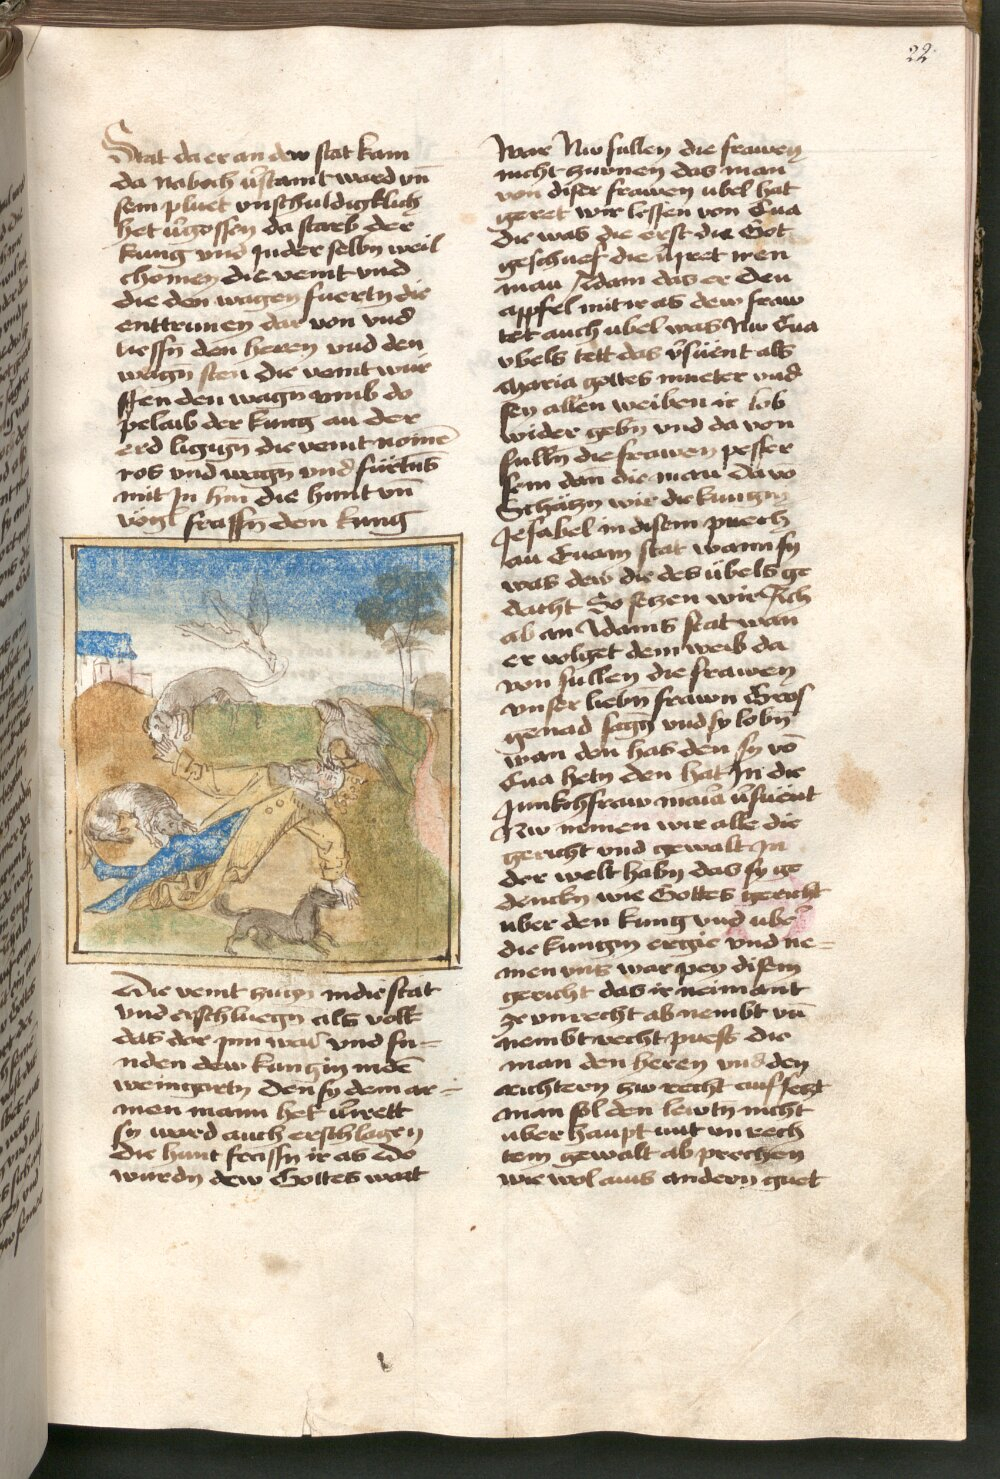 22
Stat da er an dew stat kam
da Naboth v̄stamt ward vn̄
sein pluet vnschuldigklich
het v̄gossen da starb der
kung vnd In der selbn weil
chomen die veint vnd
die den wagen fuertn die
enttrunen dar von vnd
liessn den heren vnd den
wagn sten die veint wur
ffen den wagn vmb do
pelaib der kung an der
erd ligūgn die veint nomē
ros vnd wagn vnd fürtns
mit In hin die hunt vn̄
vögl frassn den kung
Die veint zugn in die stat
vnd erschluegn als volk
das dar Inn war vnd fu=
nden dew kungin in dē
weingartn Den sy dem ar=
men mann het v̄rett
sy ward auch erschlagen
die hunt frassn ir as Do
wurdn dew Gottes wart
war Nw sullen die frawen
nicht zurnen das man
von diser frawen übel hat
geret wir lessen von Eua
die was die erst die Got
geschuef die v̄ret iren
man Adam das er den
appfel mit ir as dew fraw
tet auch übel was Nw Eua
vbels tett das v̄süent als
Maria gottes mueter vnd
sey allen weiben ir lob
wider gebn vnd da von
sulln die frawen pesser
sein dan die man da vō
Schätzn wir die kungin
Jesabel in disem puech
an Euam stat wann sy
was dew die des übels ge
dacht So setzen wir Ach
ab an Adams stat wan
er volget dem weib da
von sullen die frawen
vnser liebn frawn Gros
genad sagn vnd sy lobn
wan den has den sy vō
Eua hetn den hat In die
Junkchfraw maria v̄süent
Nw nemen wir alle die
gericht vnd gewalt In
der welt habn das sy ge
denckn wie Gottes gericht
uber den kung vnd uber
die kungin ergie vnd ne=
men vns war pey disem
gericht das ir neimant
Ze vnrecht ab nembt vn̄
nembt recht puess die
man den heren vnd den
richtern zw recht auf setzt
man sol den lewtn nicht
uber haupt mit vnrech
tem gewalt ab prechen
wie wol aus andern guet